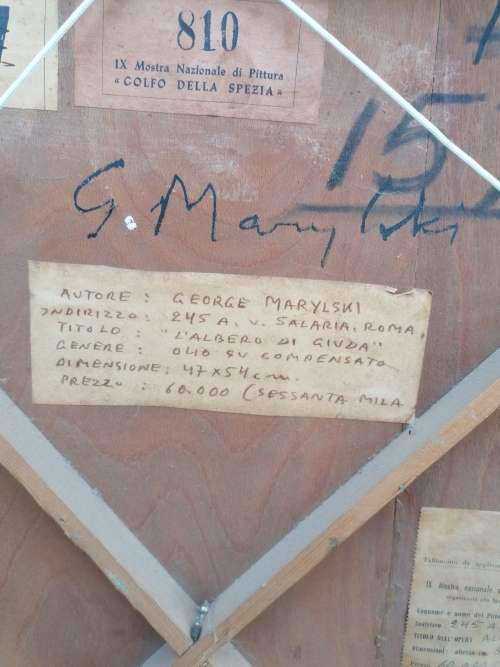 810
IX Mostra Nazionale di Pittura
« GOLFO DELLA SPEZIA »
15
G. Marylski
AUTORE : GEORGE MARYLSKI
INDIRIZZO: 245 A. V. SALARIA. ROMA.
TITOLO : "L'ALBERO DI GIUDA"
GENERE : OLIO SU COMPENSATO
DIMENSIONE: 47x54 cm.
PREZZO : 60.000 (SESSANTA MILA
Talloncino da
IX Mostra nazionale
Cognome e nome del Pitt
Indirizzo 245 A
TITOLO DELL'OPERA AL
Dimensioni